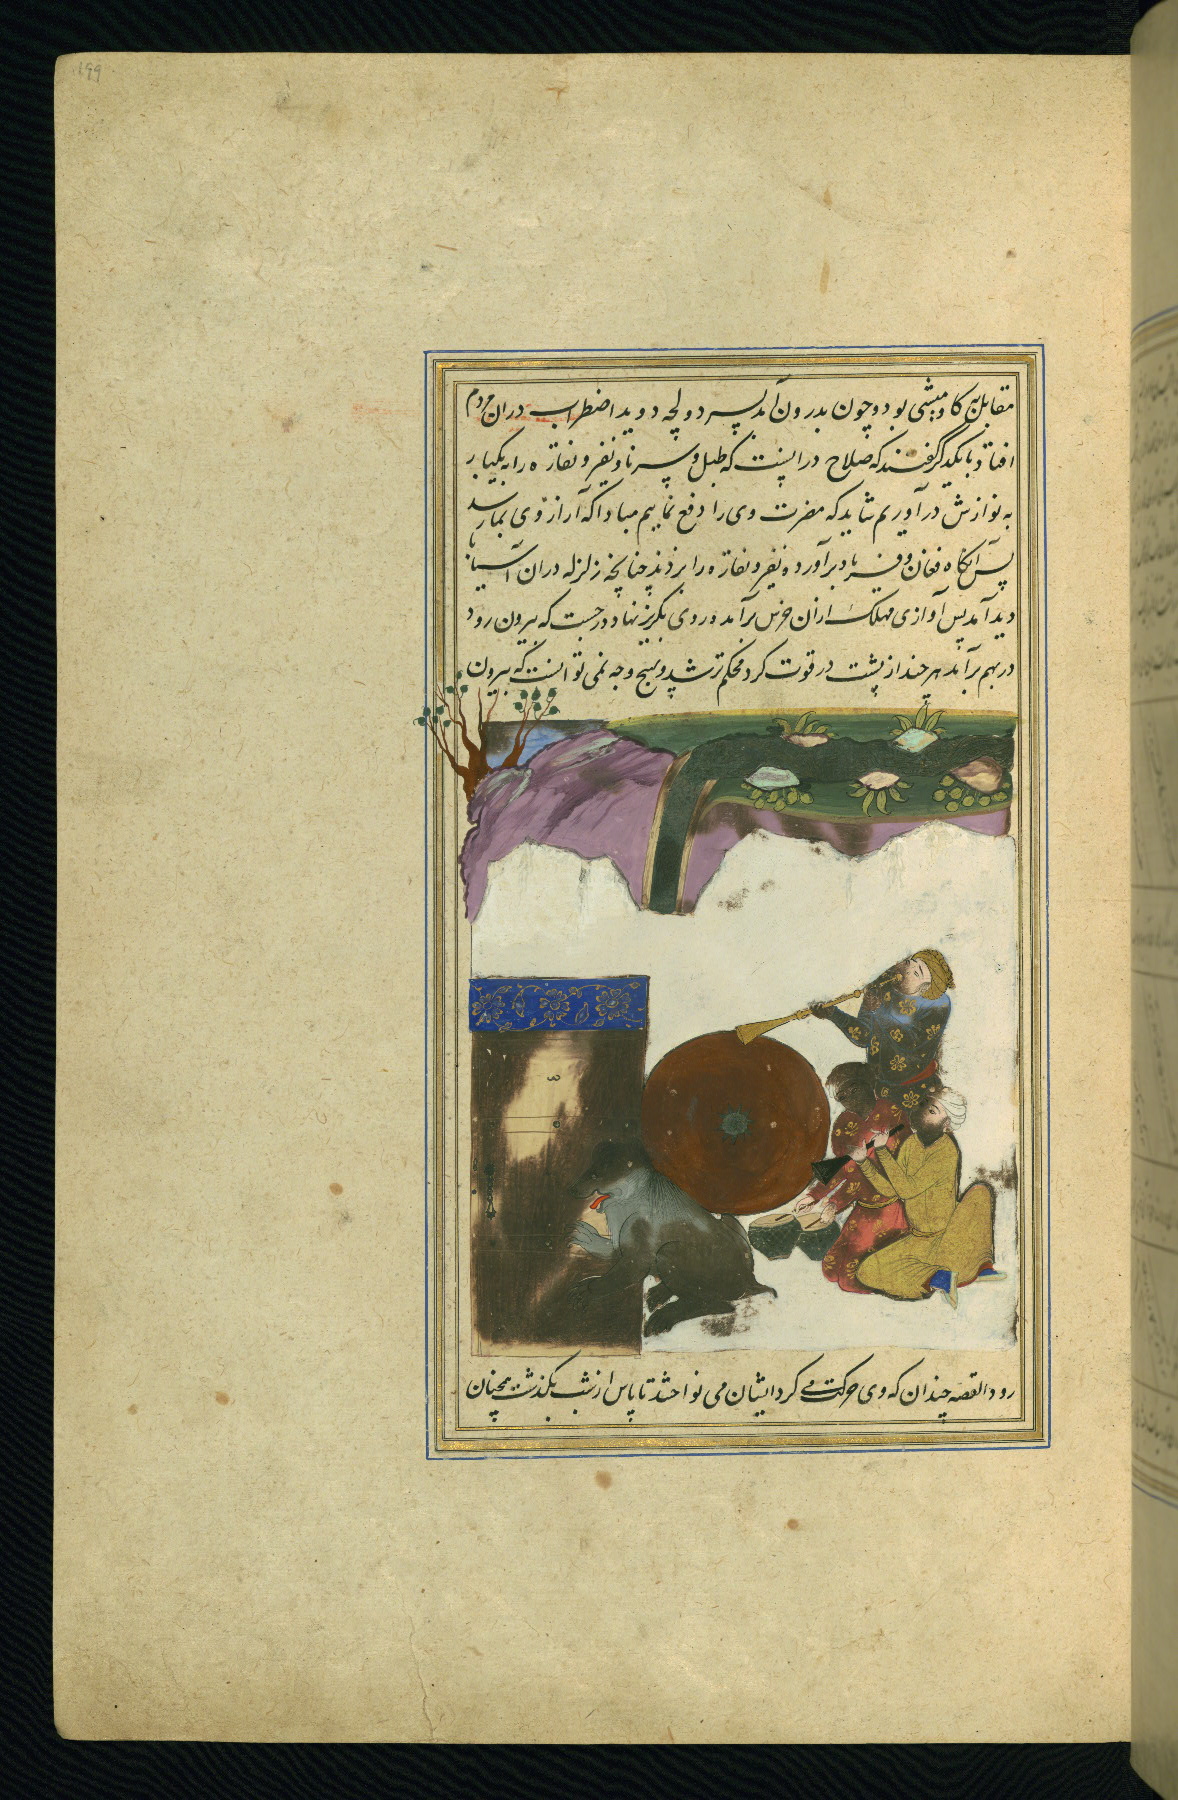 199
مقابل گاومیشی بود و چون بدرون آمد پس دولچه دوید اضطراب دران مردم
افتاد بایکدیگر گفتند که صلاح دراینست که طبل و سرنا و نفیر و نقاره را به یکبار
به نوازش درآوریم شاید که مضرت وی را دفع نماییم مبادا که آزار از وی بما رسد
پس آنگاه فغان و فریاد برآورده نفیر و نقاره را بر زدند چنانچه زلزله دران آسیا
دید آمد پس آوازی مهلک ازان خرس برآمد و روی بگریز نهاد و درجست که بیرون رود
در بهم برآمد هرچند از پشت در قوت کرد محکم تر شد و بهیچ وجه نمی توانست که بیرون
رود القصه چندان که وی حرکت می کرد ایشان می نواختند تا پاس از شب بگذشت همچنان